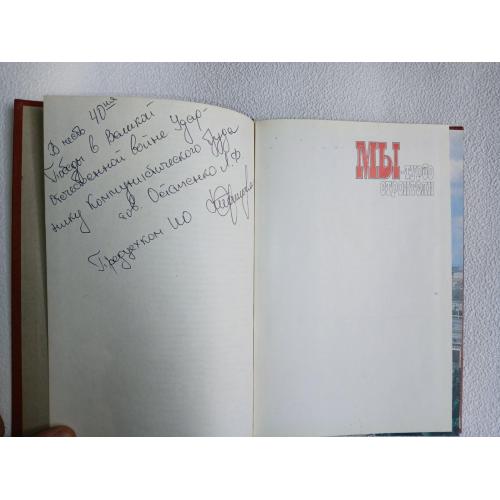 В честь 40ия
Победы в Великой
Отечественной войне Удар-
нику Коммунистического Труда
тов. Л.Ф
Предцехком
МЫ
-турбо
строители